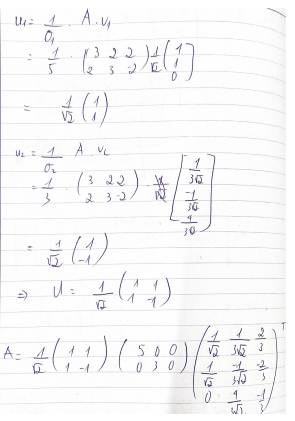 u₁ = 1/σ₁ · A · v₁
= 1/5 · (3 2 2; 2 3 -2) 1/√2 (1; 1; 0)
= 1/√2 (1; 1)
u₂ = 1/σ₂ A · v₂
= 1/3 · (3 2 2; 2 3 -2) · (1/3√2; -1/3√2; 4/3√2)
= 1/√2 (1; -1)
⇒ U = 1/√2 (1 1; 1 -1)
A = 1/√2 (1 1; 1 -1) (5 0 0; 0 3 0) (1/√2 1/3√2 2/3; 1/√2 -1/3√2 -2/3; 0 4/3√2 -1/3)ᵀ